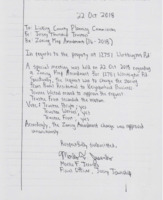 22 Oct 2018
To: Licking County Planning Commission
Fr: Jersey Township Trustees
Re: Zoning Map Amendment
In regards to the property at 12751 Worthington Rd.
A special meeting was held on 22 Oct 2018 regarding
a Zoning Map Amendment for 12751 Worthington Rd.
Specifically, the request was to change the Zoning
from Rural Residential to Neighborhood Business.
Trustee Wetzel moved to approve the request.
Trustee Frost seconded the motion.
Vote: Trustee Bright, yes
Trustee Wetzel, yes
Trustee Frost, yes
Accordingly, the Zoning Amendment change was approved
unanimously.
Respectfully submitted,
Fiscal Officer, Jersey Township